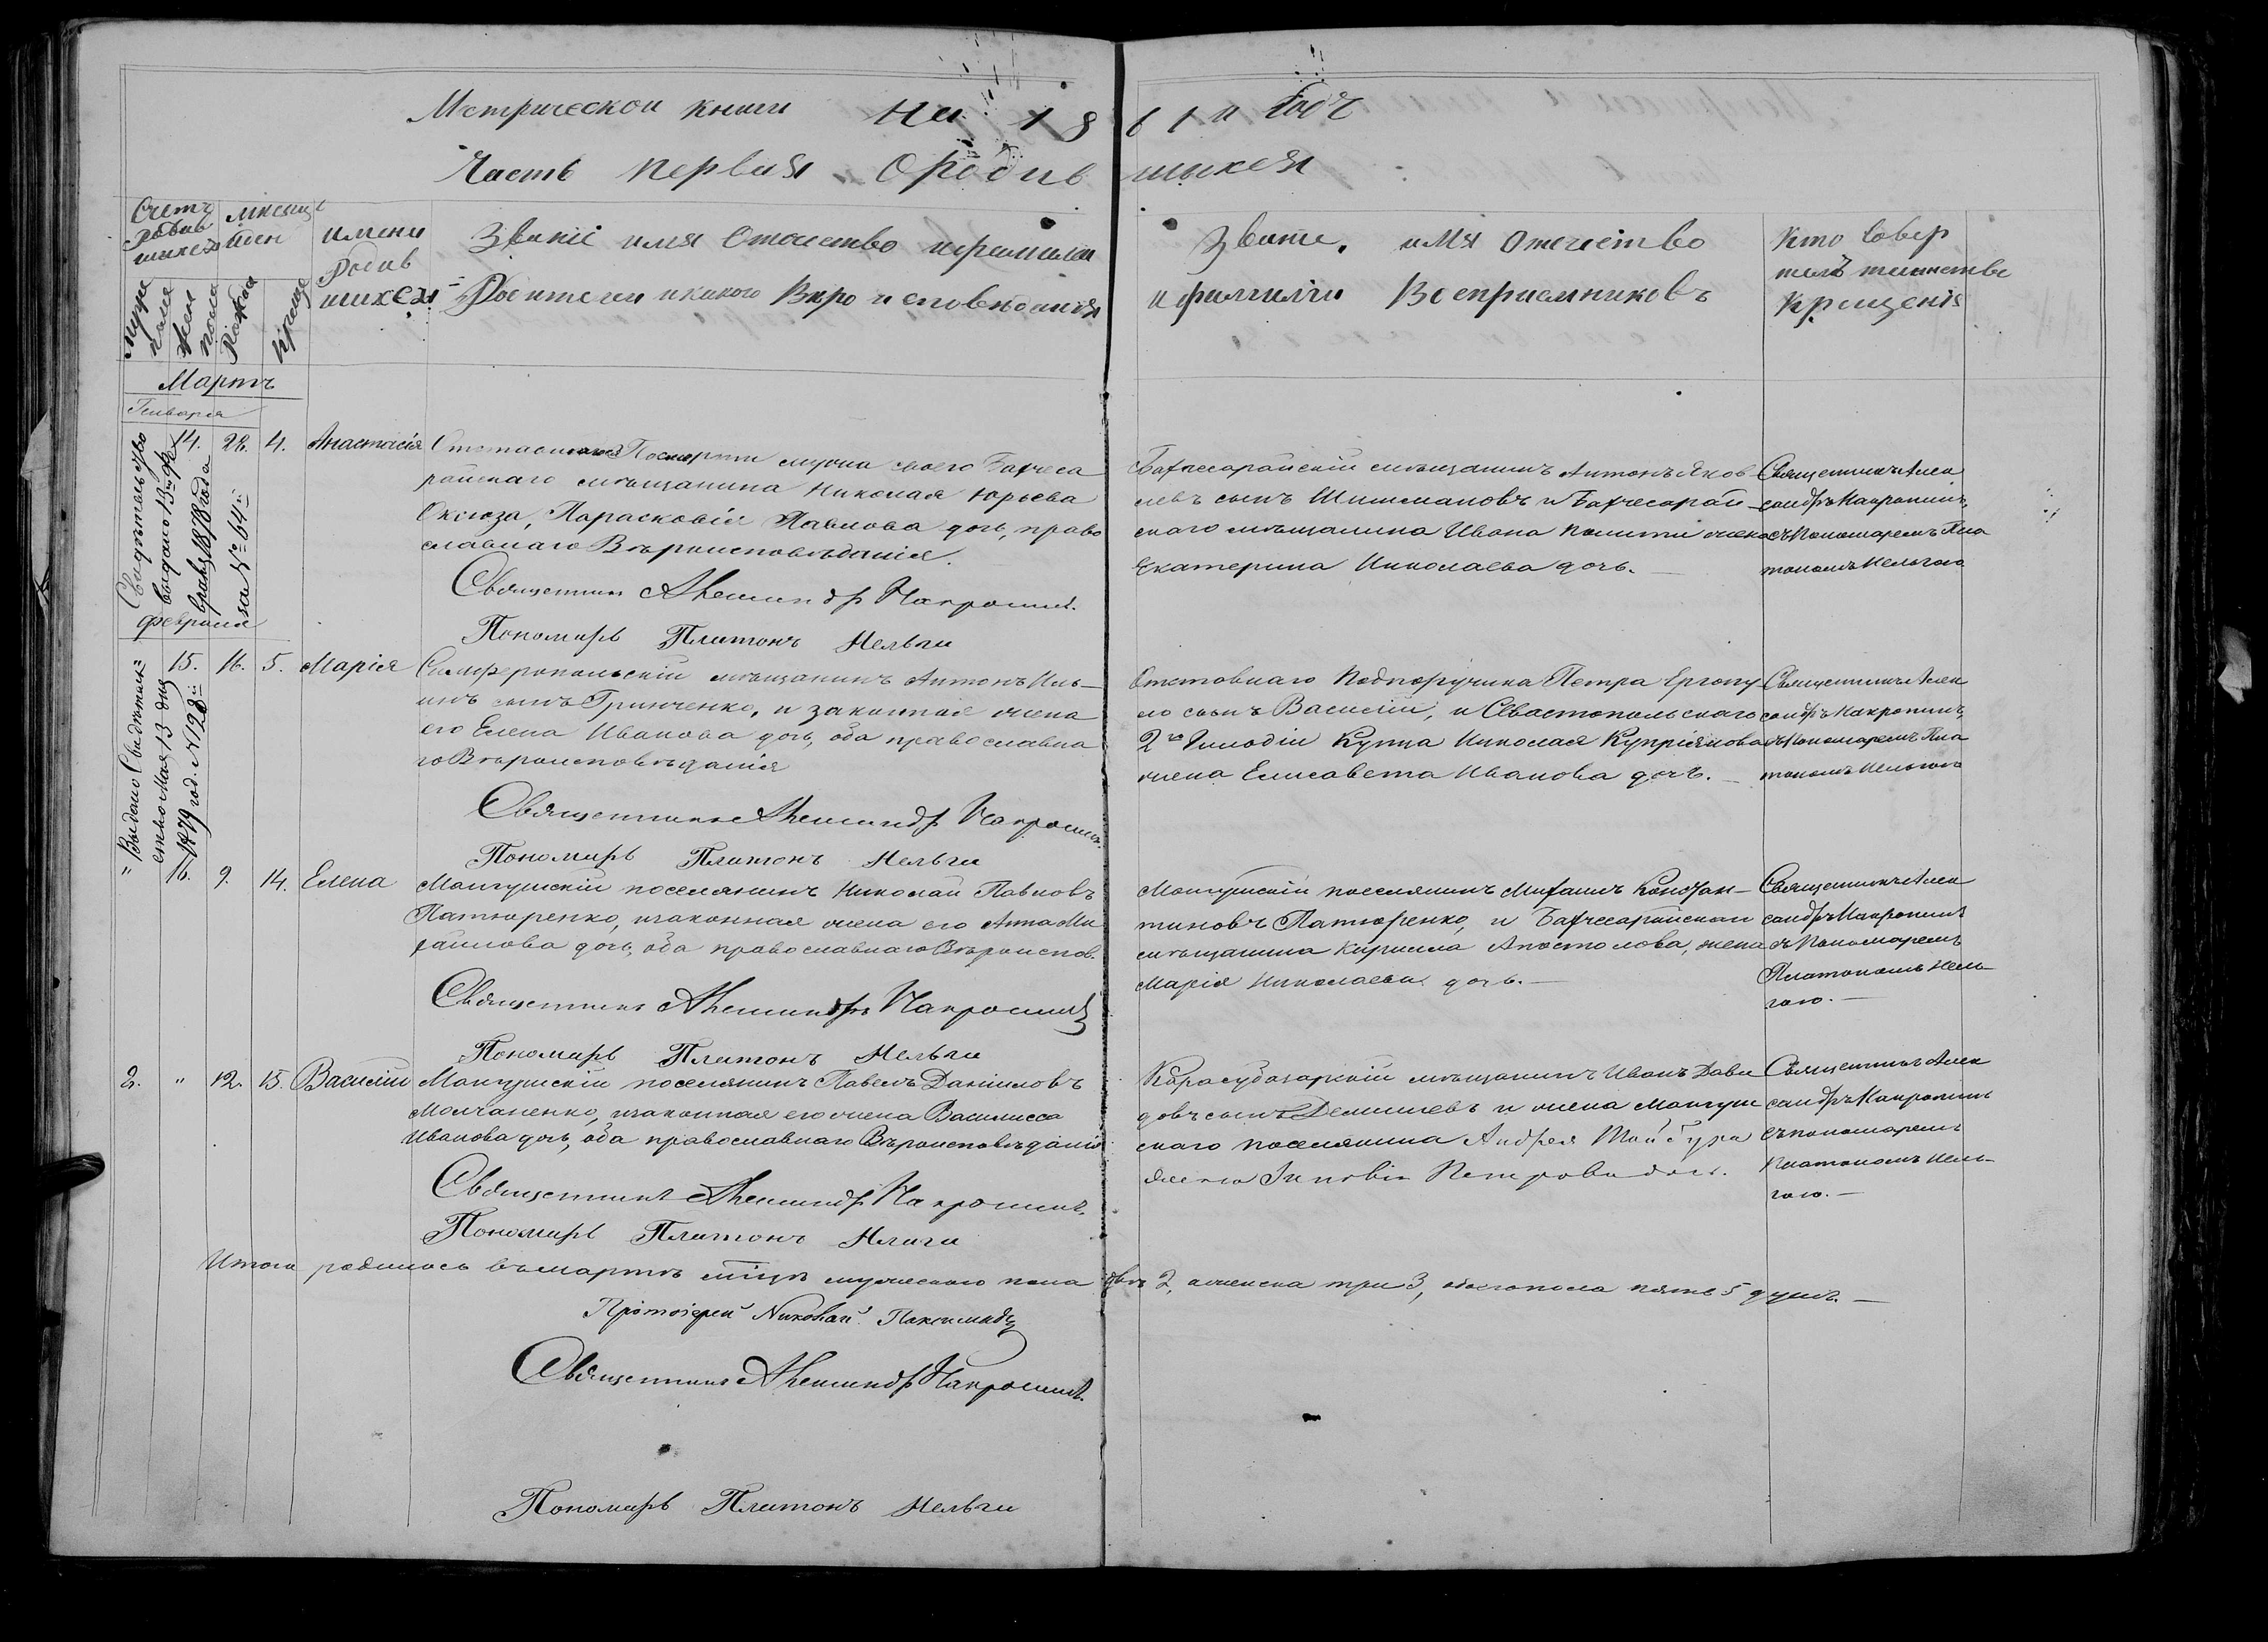 Метрической книги на 1861й годъ
Часть первая о родившихся
Счетъ родившихся
Мѣсяцъ и ден
Имени родившихся
Званіе имя Отчество и фамилии
Родители и какого Вѣроисповѣданія
Званіе, имя Отечество
и фамиліи Восприемниковъ
Кто Совер
шалъ таинство
Крещенія
Муже пола
Жен пола
Рожд
Креще
Мартъ
Генваря
Свидѣтельство
выдано 13
1878 года
за № 64й
14. 22. 4. Анастасія
Оставшаяся По смерти мужа своего Бахчеса
райскаго мѣщанина Николая Юрьева
Оксюза, Парасковія Павлова дочь, право
славнаго Вѣроисповѣданія.
Священникъ Александръ
Пономарь Платонъ
Бахчесарайскій мѣщанинъ Антонъ Яков
левъ сынъ Шишмановъ и Бахчесарай
скаго мѣщанина Ивана жена
Екатерина Николаева дочь.
Священникъ Алек
сандръ
съ Пономаремъ Пла
тономъ
Февраля
Выдано Свидѣтель
ство Мая 13 дня
1879 год. № 128й
" 15. 16. 5. Марія
Симферопольскій мѣщанинъ Антонъ Иль-
инъ сынъ Гринченко, и законная жена
его Елена Иванова дочь, оба православна
го Вѣроисповѣданія
Священникъ Александръ
Пономарь Платонъ
Отставнаго Подпоручика Петра
сынъ Василій, и Севастопольскаго
2й Гильдіи Купца Николая Купріянова
жена Елисавета Иванова дочь.
Священникъ Алек
сандръ
съ Пономаремъ Пла
тономъ
16. 9. 14. Елена
Мангушскій поселянинъ Николай Павловъ
Патюренко, и законная жена его Анна Ми
хаилова дочь, оба православнаго Вѣроиспов.
Священникъ Александръ
Пономарь Платонъ
Мангушскій поселянинъ Михаилъ Констан-
тиновъ Патюренко, и Бахчесарайскаго
мѣщанина Кирилла Апостолова, жена
Марія Николаева дочь.
Священникъ Алек
сандръ
съ Пономаремъ
Платономъ
2. " 12. 15. Василій
Мангушскій поселянинъ Павелъ Даниловъ
Молчаненко, и законная его жена Василисса
Иванова дочь, оба православнаго Вѣроисповѣданія
Священникъ Александръ
Пономарь Платонъ
Карасубазарскій мѣщанинъ Иванъ Дави
довъ сынъ и жена Мангуш
скаго поселянина Андрея
Петрова дочь.
Священникъ Алек
сандръ
съ пономаремъ
Платономъ
Итого родилось въ мартѣ мѣцѣ мужескаго пола два 2, а женска три 3, обоего пола пять 5 душъ.
Протоіерей Николай
Священникъ Александръ
Пономарь Платонъ